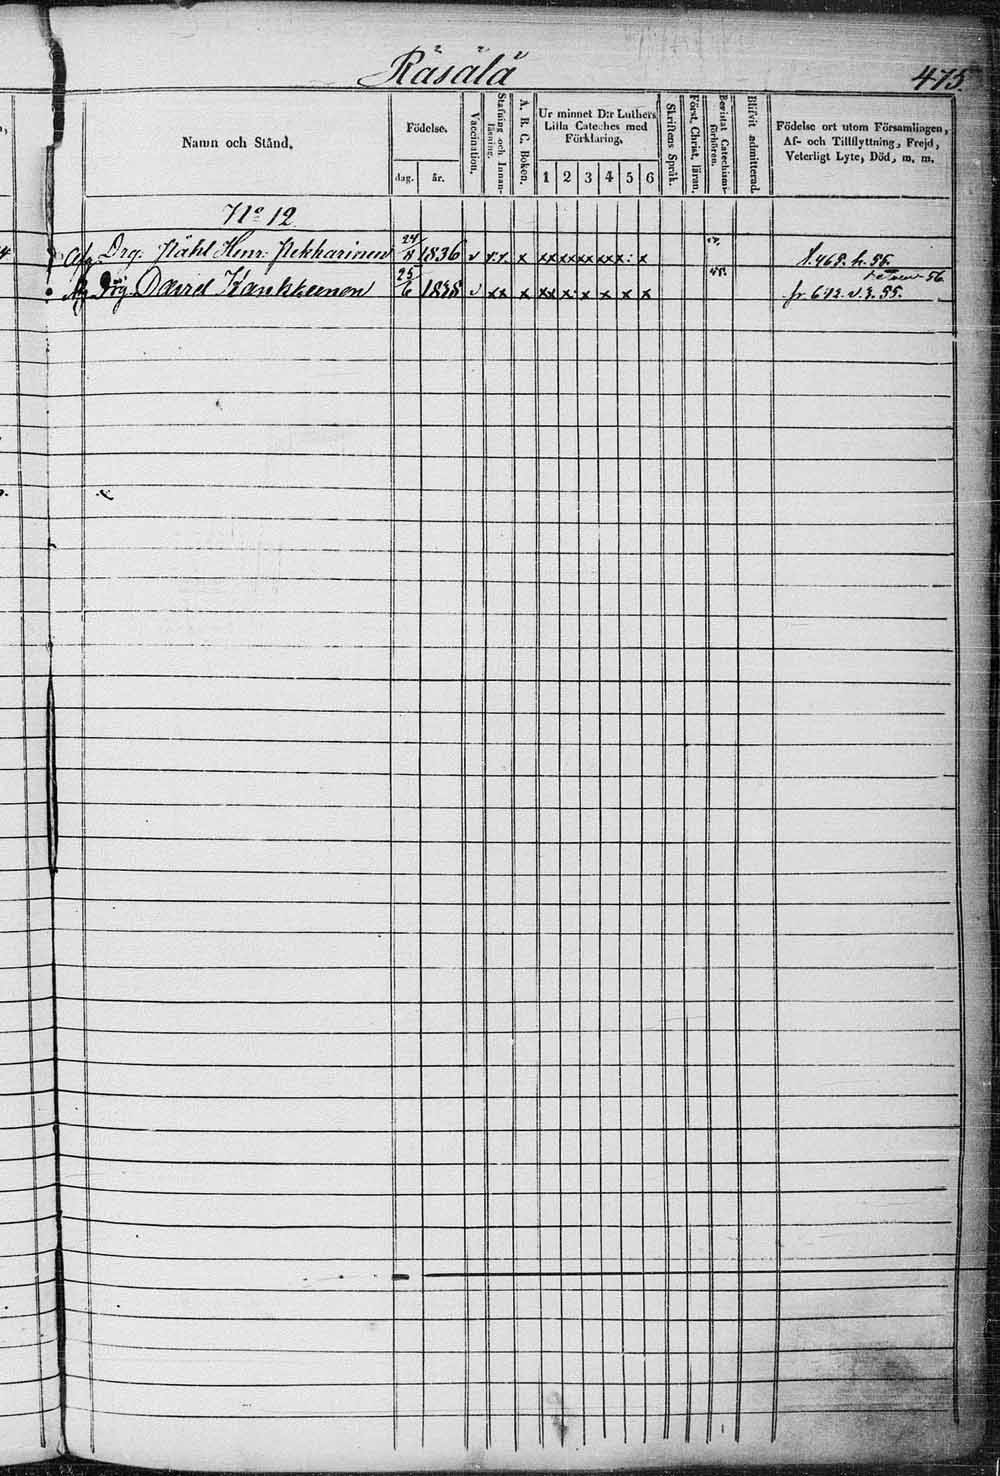 Räsälä
475.
Namn och Stånd.
Födelse.
dag. år.
Vaccination.
Stafning och Innan-
läsning.
A. B. C. Boken.
Ur minnet D:r Luthers
Lilla Cateches med
Förklaring.
1 2 3 4 5 6
Skriftens Språk.
Först. Christ. läran.
Bevistat Catechismi-
förhören.
Blifvit admitterad.
Födelse ort utom Församlingen,
Af- och Tillflyttning, Frejd,
Veterligt Lyte, Död, m. m.
No 12
Drg. Påhl Henr. Pekkarinen 24/11 1836 v x x x xx xx xx xx x x
Drg. David Kankkunen 25/6 1838 v xx x xx x x x x x 48. fr. 642. v. 3. 55.